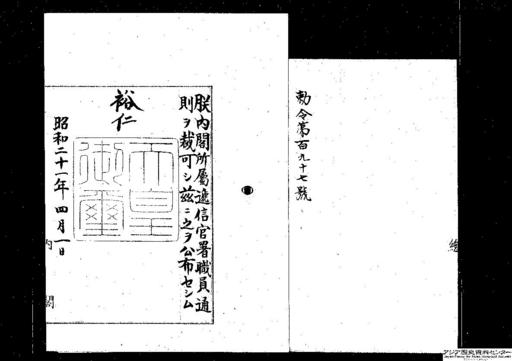 勅令第百九十七號
朕內閣所屬遞信官署職員通
則ヲ裁可シ茲ニ之ヲ公布セシム
裕仁
天皇御璽
昭和二十一年四月一日
內閣
アジア歴史資料センター